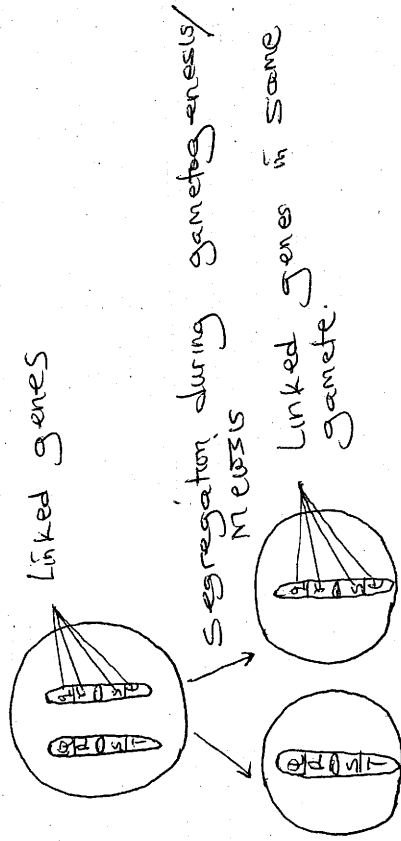 Linked genes
Segregation during gametogenesis/
Meiosis
Linked genes in same
gamete.